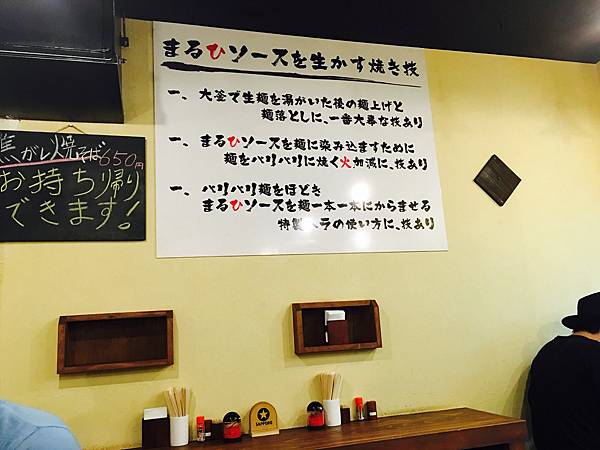 まるひソースを生かす焼き技
一、大釜で生麺を湯がいた後の麺上げと
麺落としに、一番大事な技あり
一、まるひソースを麺に染み込ますために
麺をバリバリに焼く火加減に、技あり
一、バリバリ麺をほどき
まるひソースを麺一本一本にからませる
特製ヘラの使い方に、技あり
焦がし焼そば650円
お持ち帰り
できます!
SAPPORO